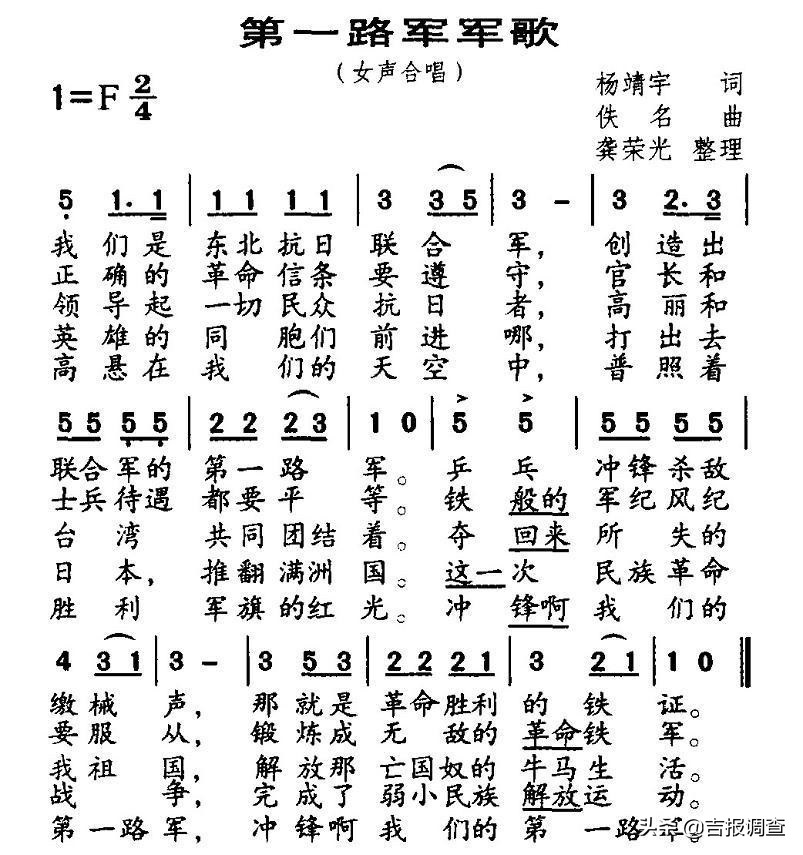 第一路军军歌
（女声合唱）
1=F 2/4
杨靖宇 词
佚名 曲
龚荣光 整理
5 1. 1 | 1 1 1 1 | 3 3 5 | 3 - | 3 2. 3 |
我们是 东北抗日 联合 军， 创造出
正确的 革命信条 要遵 守， 官长和
领导起 一切民众 抗日 者， 高丽和
英雄的 同胞们 前进 哪， 打出去
高悬在 我们的 天空 中， 普照着
5 5 5 5 | 2 2 2 3 | 1 0 | 5 5 | 5 5 5 5 |
联合军的 第一路 军。 乒乓 冲锋杀敌
士兵待遇 都要平 等。 铁般的 军纪风纪
台湾 共同团结 着。 夺回来 所失的
日本， 推翻满洲 国。 这一次 民族革命
胜利 军旗的红 光。 冲锋啊 我们的
4 3 1 | 3 - | 3 5 3 | 2 2 2 1 | 3 2 1 | 1 0 ‖
缴械 声， 那就是 革命胜利 的铁 证。
要服 从， 锻炼成 无敌的 革命铁 军。
我祖 国， 解放那 亡国奴的 牛马生 活。
战 争， 完成了 弱小民族 解放运 动。
第一路 军， 冲锋啊 我们的 第一路 军。
头条 @吉报调查